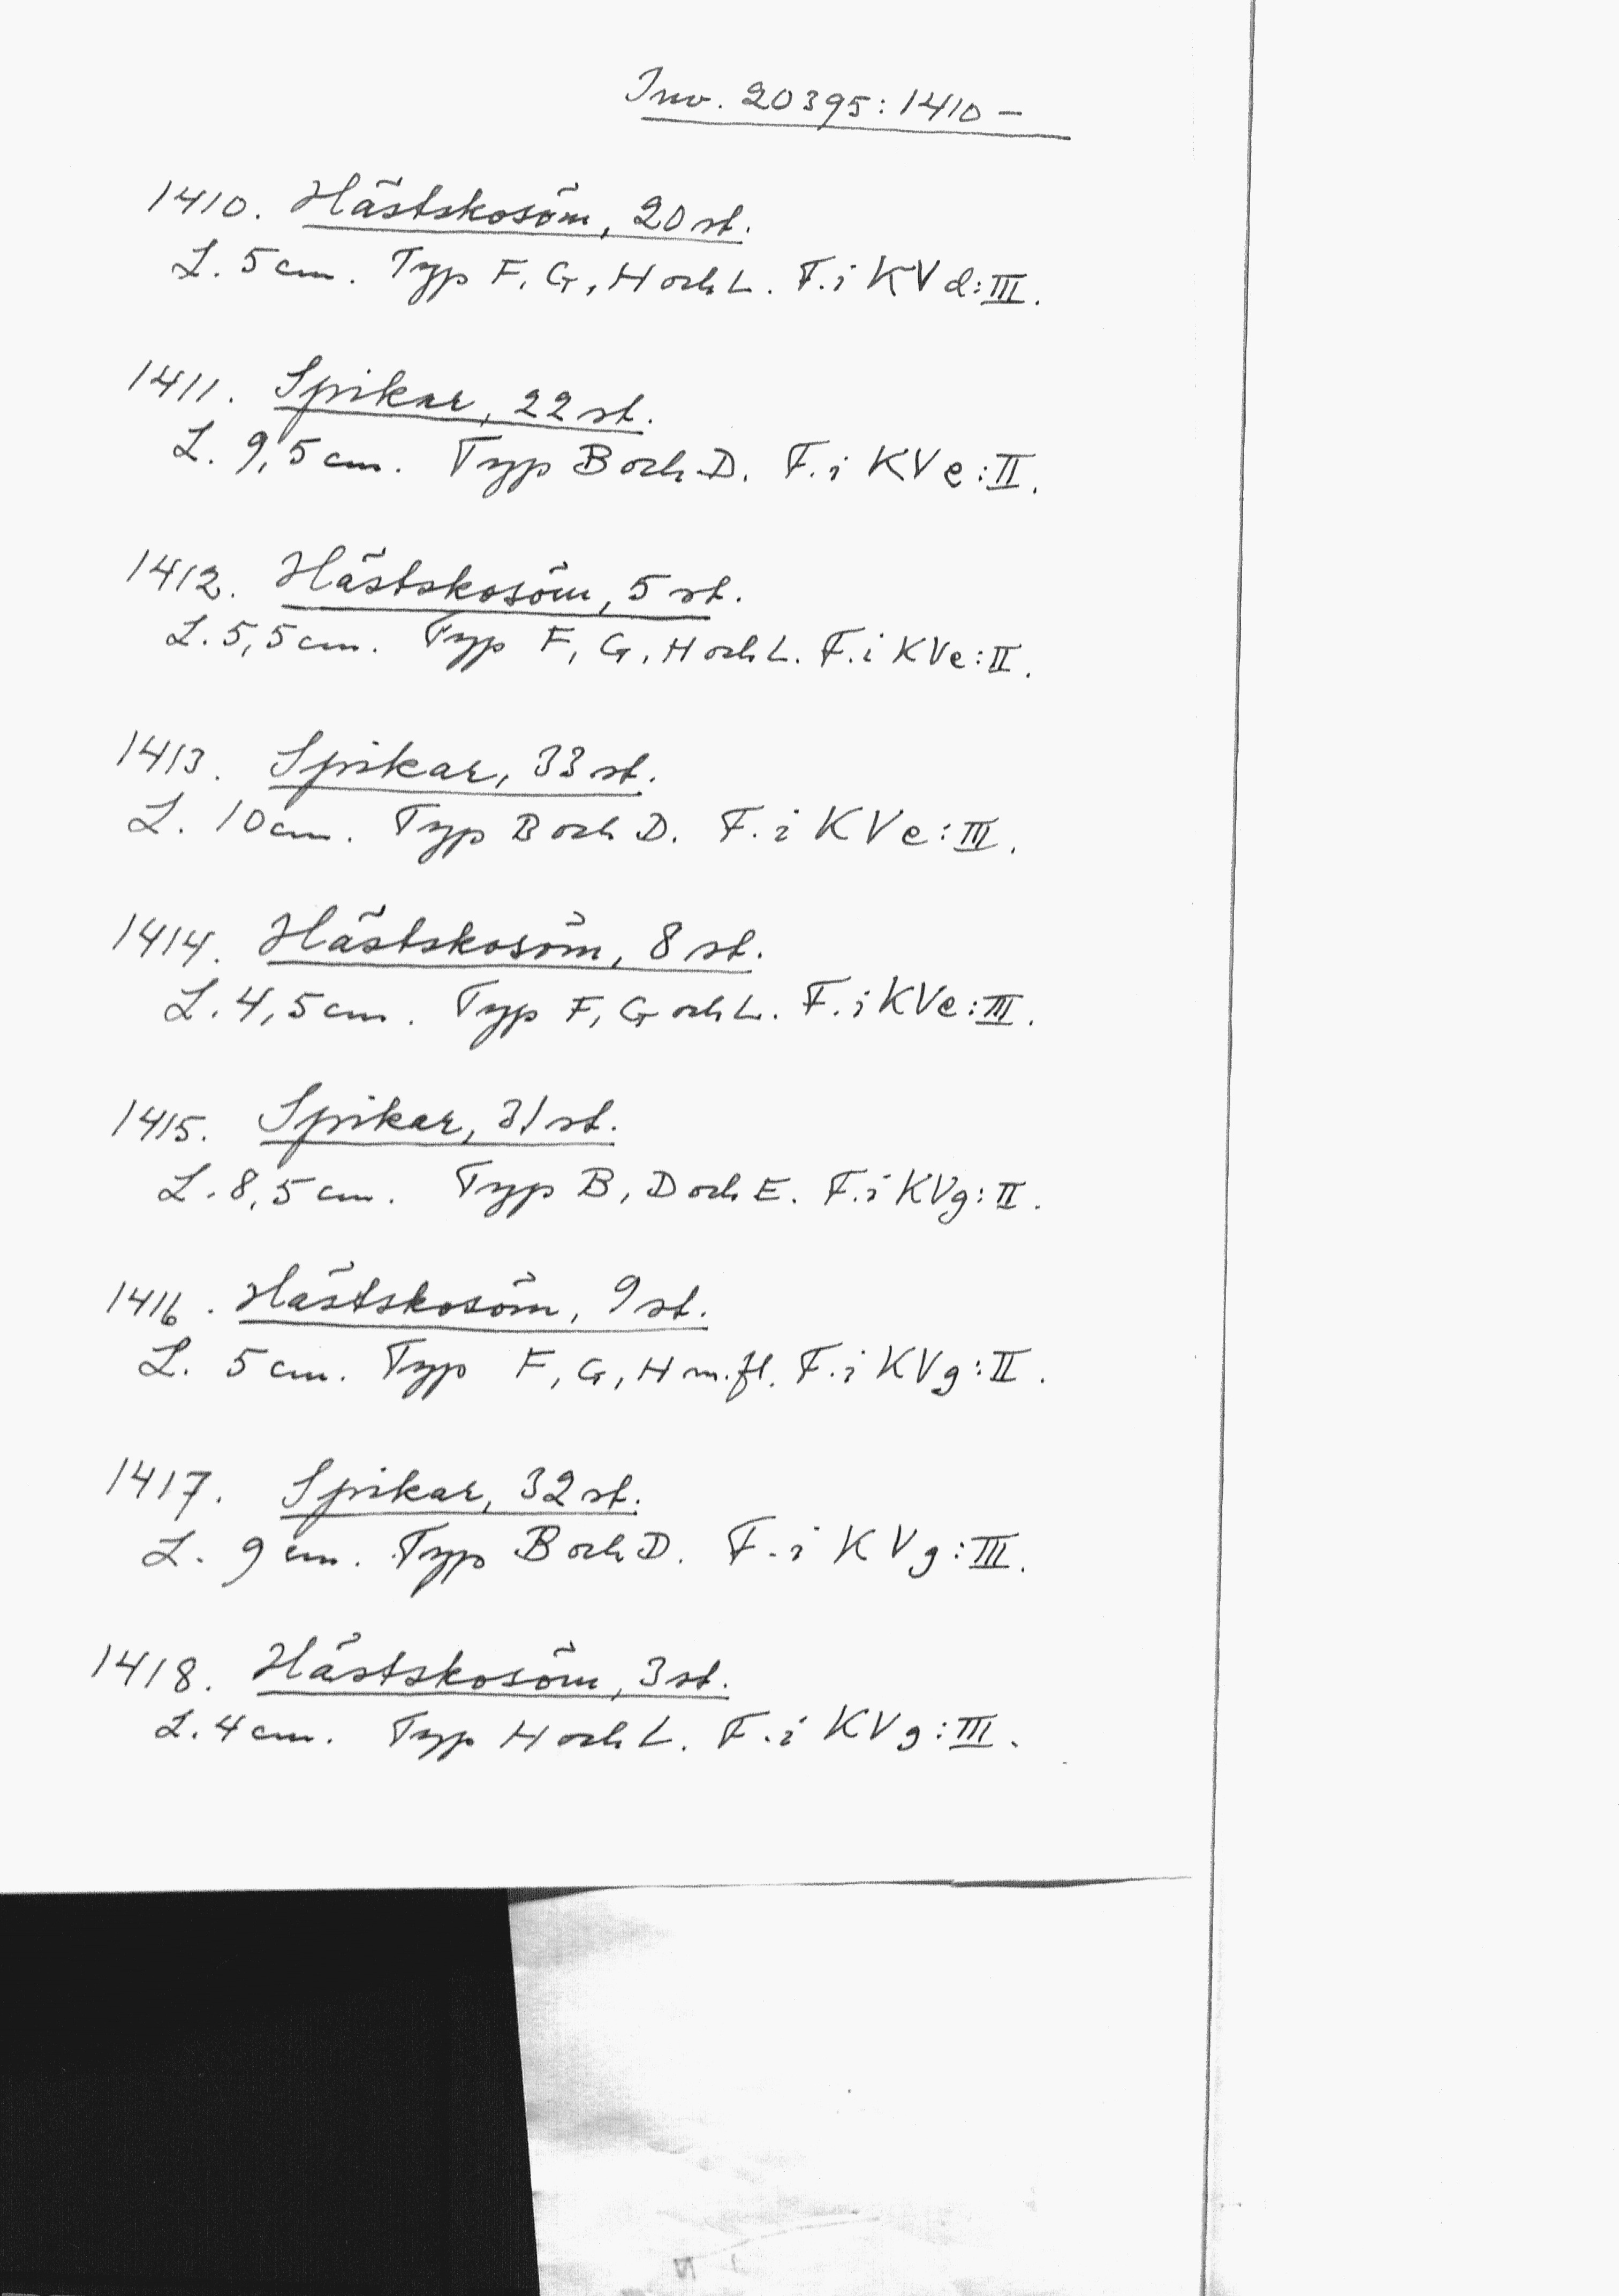 Inv. 20395:1410 –
1410. Hästskosöm, 20 st.
L. 5 cm. Typ F, G, H och L. F. i KVd:III.
1411. Spikar, 22 st.
L. 9,5 cm. Typ B och D. F. i KVe:II.
1412. Hästskosöm, 5 st.
L. 5,5 cm. Typ F, G, H och L. F. i KVe:II.
1413. Spikar, 33 st.
L. 10 cm. Typ B och D. F. i KVe:III.
1414. Hästskosöm, 8 st.
L. 4,5 cm. Typ F, G och L. F. i KVe:III.
1415. Spikar, 31 st.
L. 8,5 cm. Typ B, D och E. F. i KVg:II.
1416. Hästskosöm, 9 st.
L. 5 cm. Typ F, G, H m.fl. F. i KVg:II.
1417. Spikar, 32 st.
L. 9 cm. Typ B och D. F. i KVg:III.
1418. Hästskosöm, 3 st.
L. 4 cm. Typ H och L. F. i KVg:III.